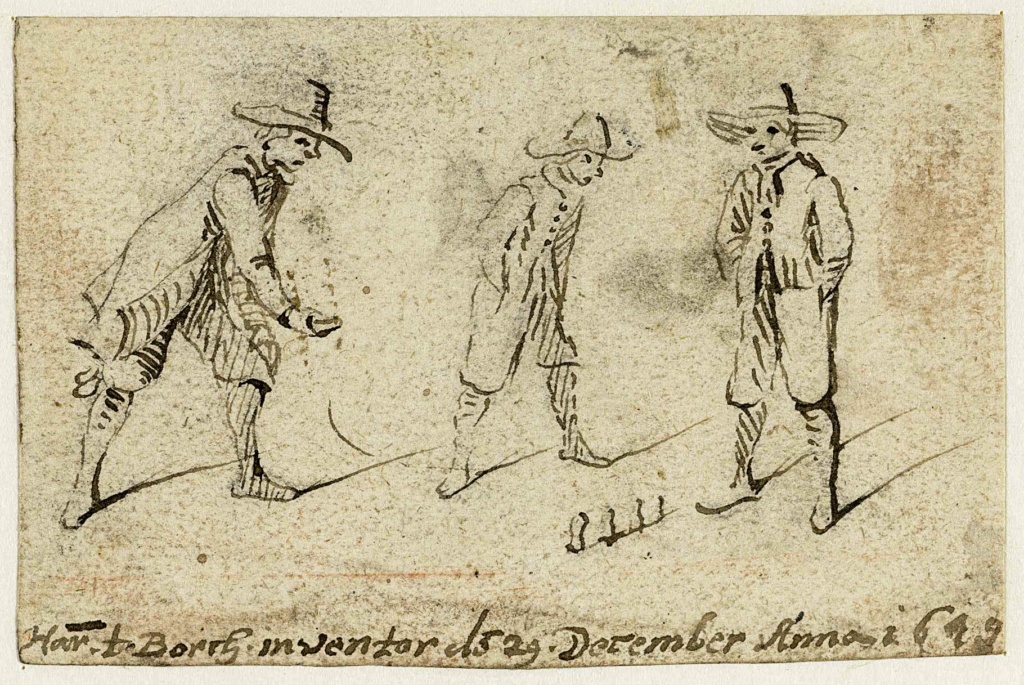 Har. t. Borch. inventor ds 29. December Anno. i649